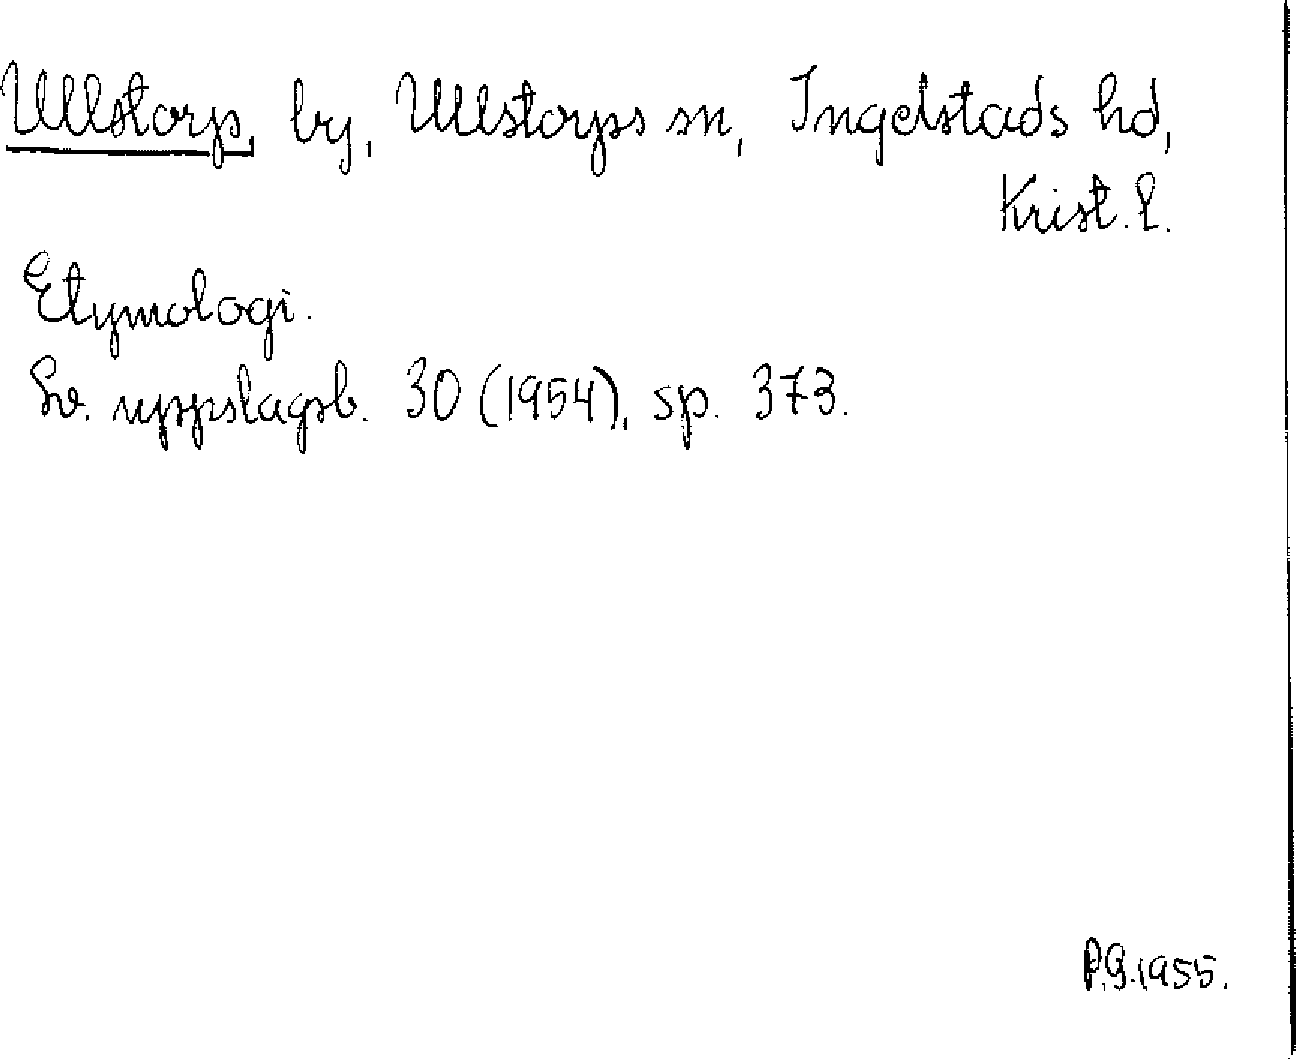 Ullstorp, by, Ullstorps sn, Ingelstads hd,
Krist. l.
Etymologi.
Sv. uppslagsb. 30 (1954), sp. 373.
P.G. 1955.